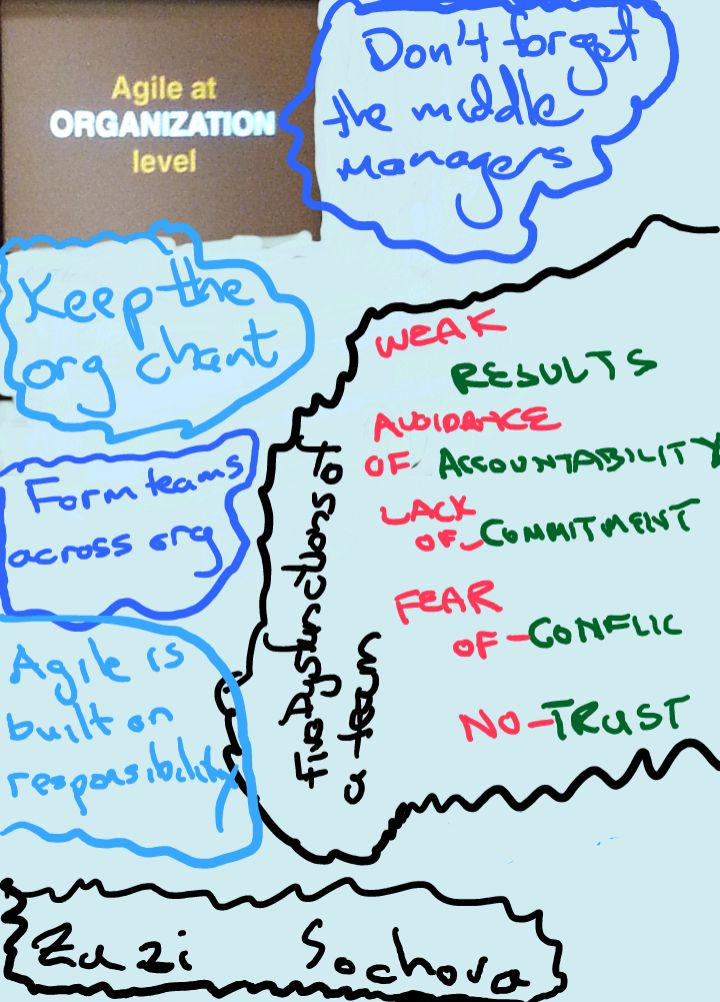 Agile at
ORGANIZATION
level
Don't forget
the middle
managers
Keep the
org chart
Form teams
across org
Agile is
built on
responsibility
Five Dysfunctions of
a team
WEAK
RESULTS
AVOIDANCE
OF ACCOUNTABILITY
LACK
OF-COMMITMENT
FEAR
OF-CONFLIC
NO-TRUST
Zuzi Sochova